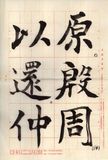 原殷周
以還仲